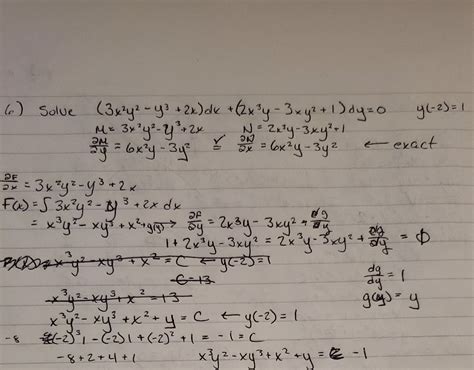 6) Solve (3x²y² - y³ + 2x)dx + (2x³y - 3xy² + 1) dy = 0 y(-2) = 1
M = 3x²y² - y³ + 2x N = 2x³y - 3xy² + 1
∂M/∂y = 6x²y - 3y² ∂N/∂x = 6x²y - 3y² ← exact
∂F/∂x = 3x²y² - y³ + 2x
F(x) = ∫ 3x²y² - y³ + 2x dx
= x³y² - xy³ + x² + g(y) → ∂F/∂y = 2x³y - 3xy² + dg/dy
1 + 2x³y - 3xy² = 2x³y - 3xy² + dg/dy = 0
x³y² - xy³ + x² = C ← y(-2) = 1
C = 13
dg/dy = 1
x³y² - xy³ + x² = 13
g(y) = y
x³y² - xy³ + x² + y = C ← y(-2) = 1
-8 (-2)³1 - (-2)1 + (-2)² + 1 = -1 = C
-8 + 2 + 4 + 1 x³y² - xy³ + x² + y = -1